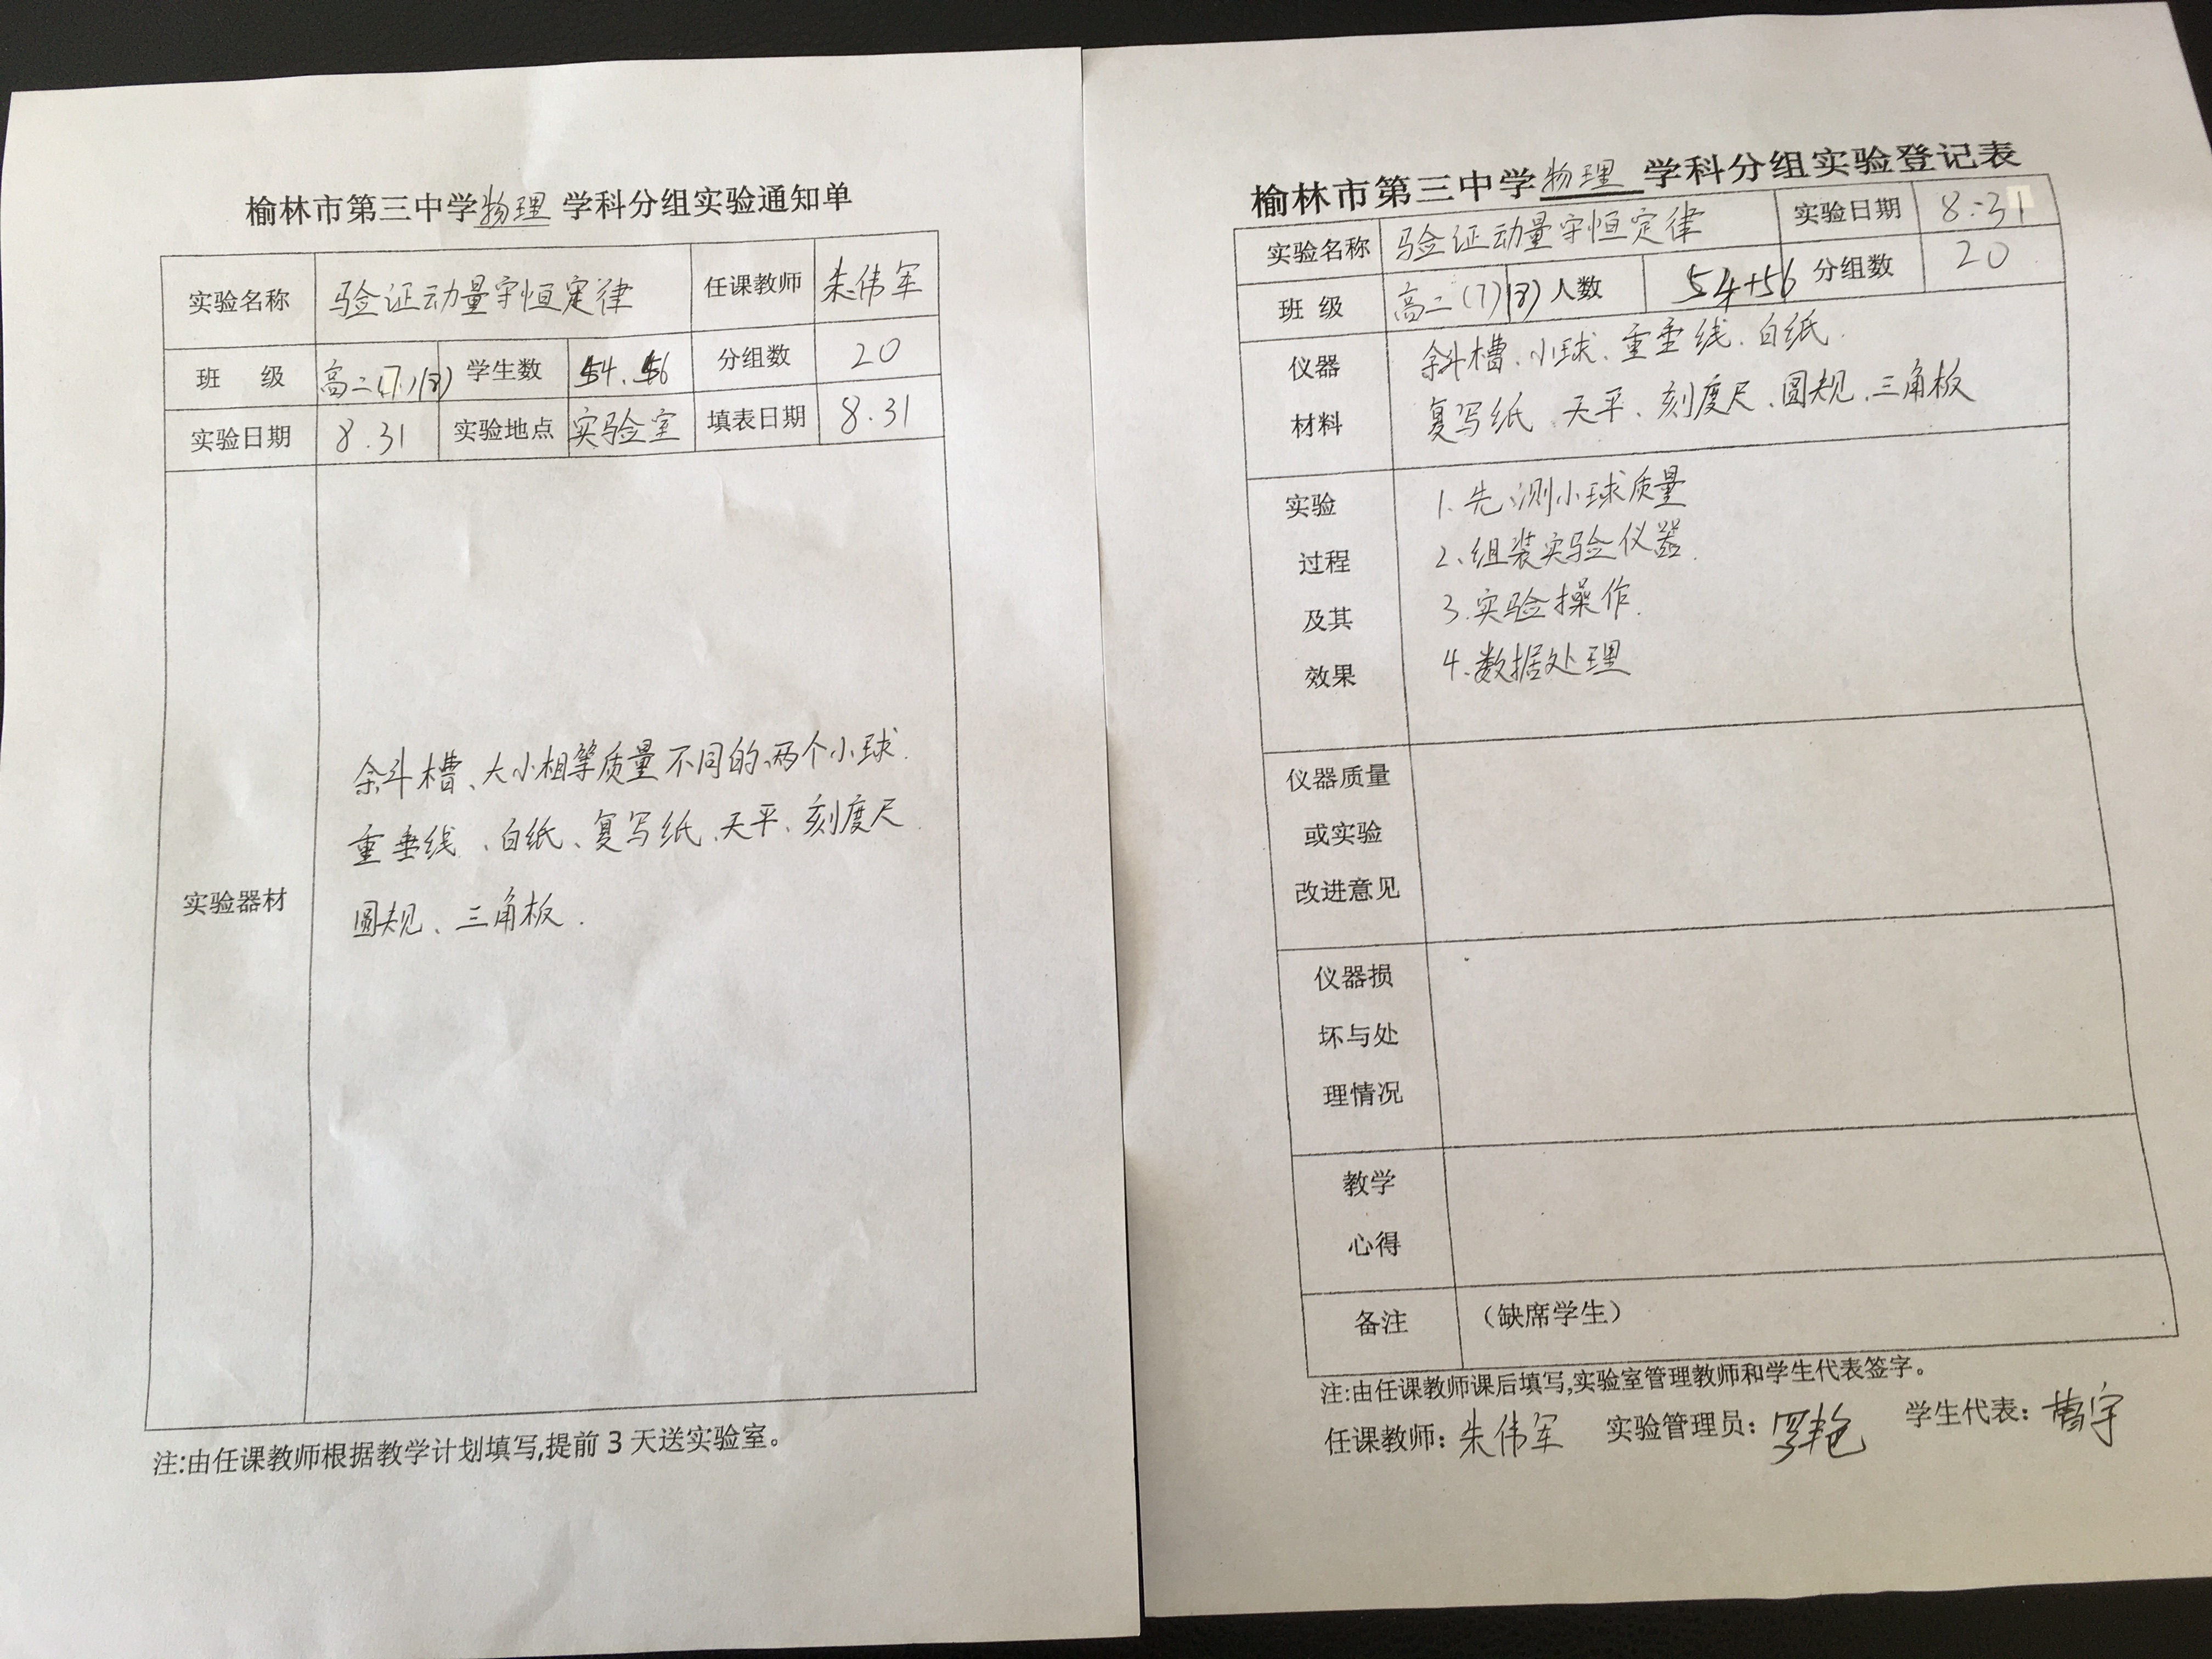 榆林市第三中学物理 学科分组实验通知单
实验名称 验证动量守恒定律 任课教师 朱伟军
班 级 高二(7)(8) 学生数 54、56 分组数 20
实验日期 8.31 实验地点 实验室 填表日期 8.31
实验器材
斜槽、大小相等质量不同的两个小球.
重垂线、白纸、复写纸、天平、刻度尺.
圆规、三角板.
注:由任课教师根据教学计划填写,提前3天送实验室。
榆林市第三中学物理 学科分组实验登记表
实验名称 验证动量守恒定律 实验日期 8.31
班 级 高二(7)(8) 人数 54+56 分组数 20
仪器
材料
斜槽、小球、重垂线、白纸.
复写纸、天平、刻度尺、圆规、三角板
实验
过程
及其
效果
1.先测小球质量
2.组装实验仪器.
3.实验操作.
4.数据处理
仪器质量
或实验
改进意见
仪器损
坏与处
理情况
教学
心得
备注 (缺席学生)
注:由任课教师课后填写,实验室管理教师和学生代表签字。
任课教师:朱伟军 实验管理员:罗艳 学生代表: